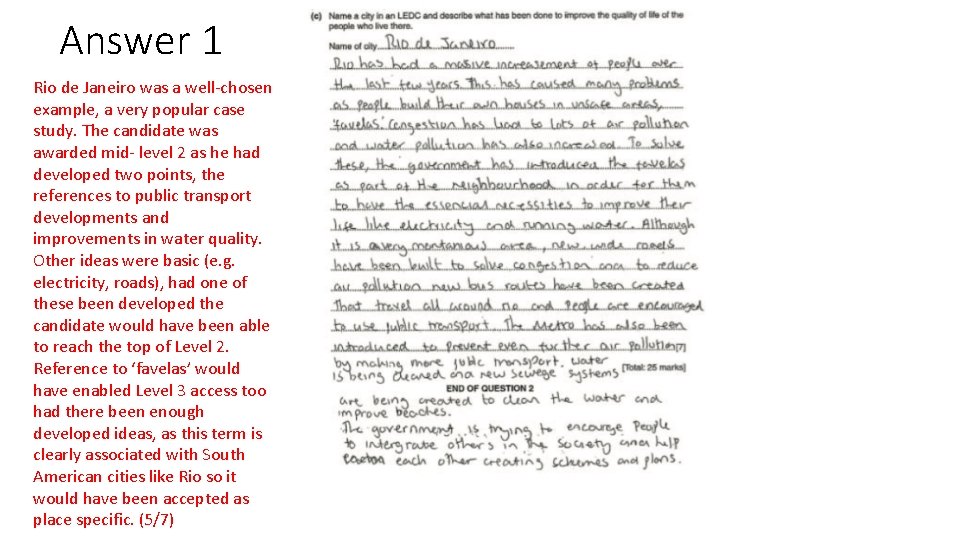 Answer 1
Rio de Janeiro was a well-chosen
example, a very popular case
study. The candidate was
awarded mid- level 2 as he had
developed two points, the
references to public transport
developments and
improvements in water quality.
Other ideas were basic (e.g.
electricity, roads), had one of
these been developed the
candidate would have been able
to reach the top of Level 2.
Reference to ‘favelas’ would
have enabled Level 3 access too
had there been enough
developed ideas, as this term is
clearly associated with South
American cities like Rio so it
would have been accepted as
place specific. (5/7)
(c) Name a city in an LEDC and describe what has been done to improve the quality of life of the
people who live there.
Name of city Rio de Janeiro
Rio has had a massive increasement of people over
the last few years. This has caused many problems
as people build their own houses in unsafe areas,
'favelas'. Congestion has lead to lots of air pollution
and water pollution has also increased. To solve
these, the government has introduced the favelas
as part of the neighbourhood in order for them
to have the essencial necessities to improve their
life like electricity and running water. Although
it is a very montanious area, new wide roads
have been built to solve congestion and to reduce
air pollution new bus routes have been created
That travel all around rio and people are encouraged
to use public transport. The Metro has also been
introduced to prevent even further air pollution
by making more public transport. water
is being cleaned and new sewege systems [Total: 25 marks]
END OF QUESTION 2
are being created to clean the water and
improve beaches.
The government is trying to encourge People
to intergrate others in the society and help
each other creating schemes and plans.